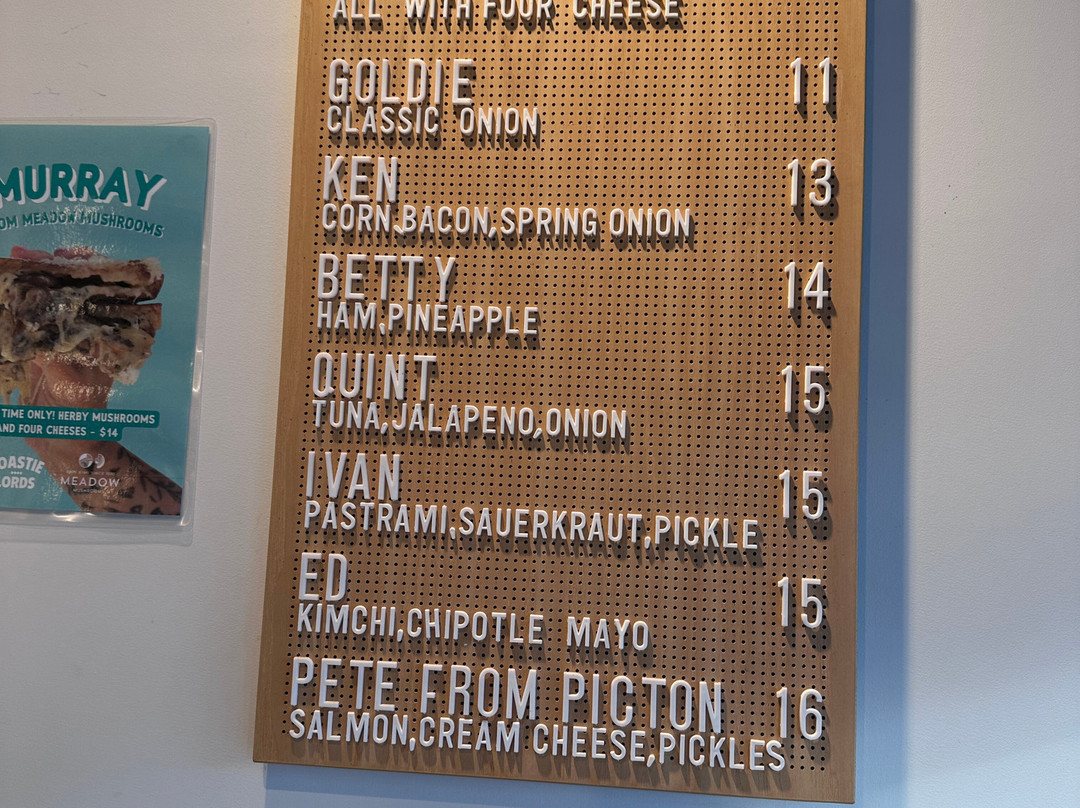 ALL WITH FOUR CHEESE
GOLDIE 11
CLASSIC ONION
KEN 13
CORN,BACON,SPRING ONION
BETTY 14
HAM,PINEAPPLE
QUINT 15
TUNA,JALAPENO,ONION
IVAN 15
PASTRAMI,SAUERKRAUT,PICKLE
ED 15
KIMCHI,CHIPOTLE MAYO
PETE FROM PICTON 16
SALMON,CREAM CHEESE,PICKLES
MURRAY
OM MEADOW MUSHROOMS
TIME ONLY! HERBY MUSHROOMS
AND FOUR CHEESES - $14
OASTIE
LORDS
MEADOW